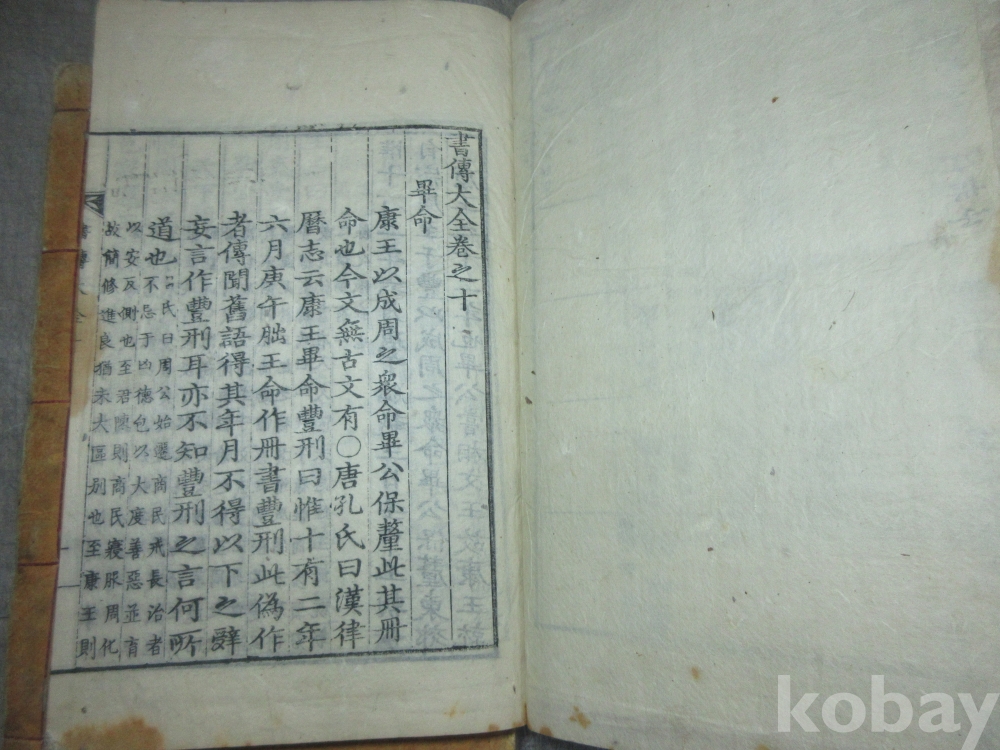 書傳大全卷之十
畢命
康王以成周之衆命畢公保釐此其冊
命也今文無古文有○唐孔氏曰漢律
曆志云康王畢命豐刑曰惟十有二年
六月庚午朏王命作冊書豐刑此偽作
者傳聞舊語得其年月不得以下之辭
妄言作豐刑耳亦不知豐刑之言何所
道也
氏曰周公始遷商民戒長治者
不忌于凶德包以大度善惡並育
以安反側也至君陳則商民寖服周化
故簡修進良猶未大區别也至康王則
書傳大全
kobay